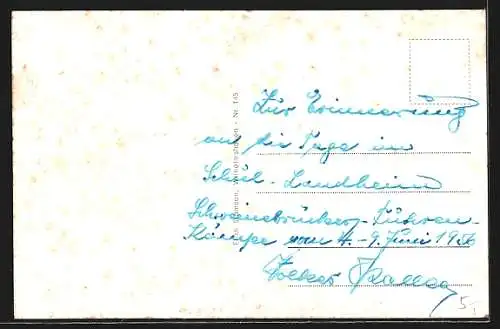 Zur Erinnerung
an die Tage im
Schul-Landheim
Schweinebrücker-Fuhren-
Kämpe vom 4.-9. Juni 1956
Volker
Wilhelmshaven - Nr. 145
5,